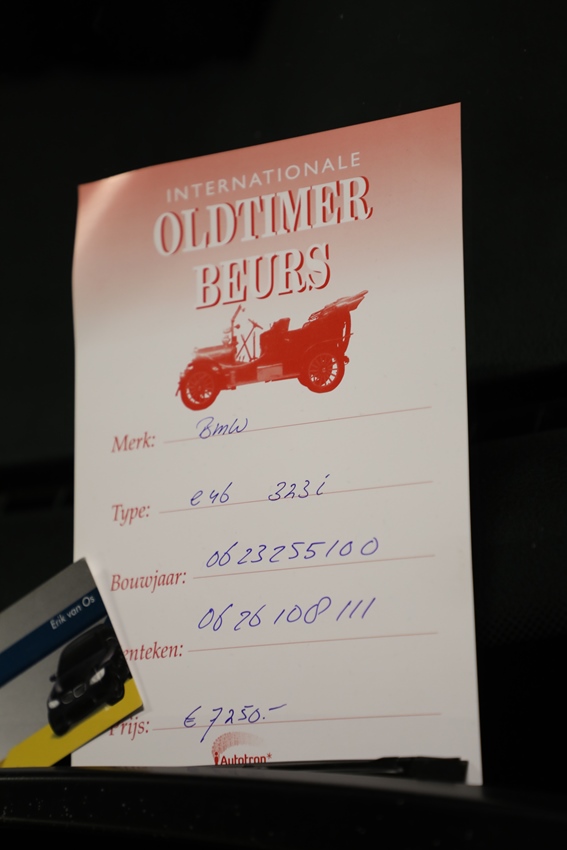 INTERNATIONALE
OLDTIMER
BEURS
Merk: BMW
Type: e46 323i
Bouwjaar: 0623255100
0626108111
enteken:
Erik van Os
Prijs: € 7250.-
Autotron*